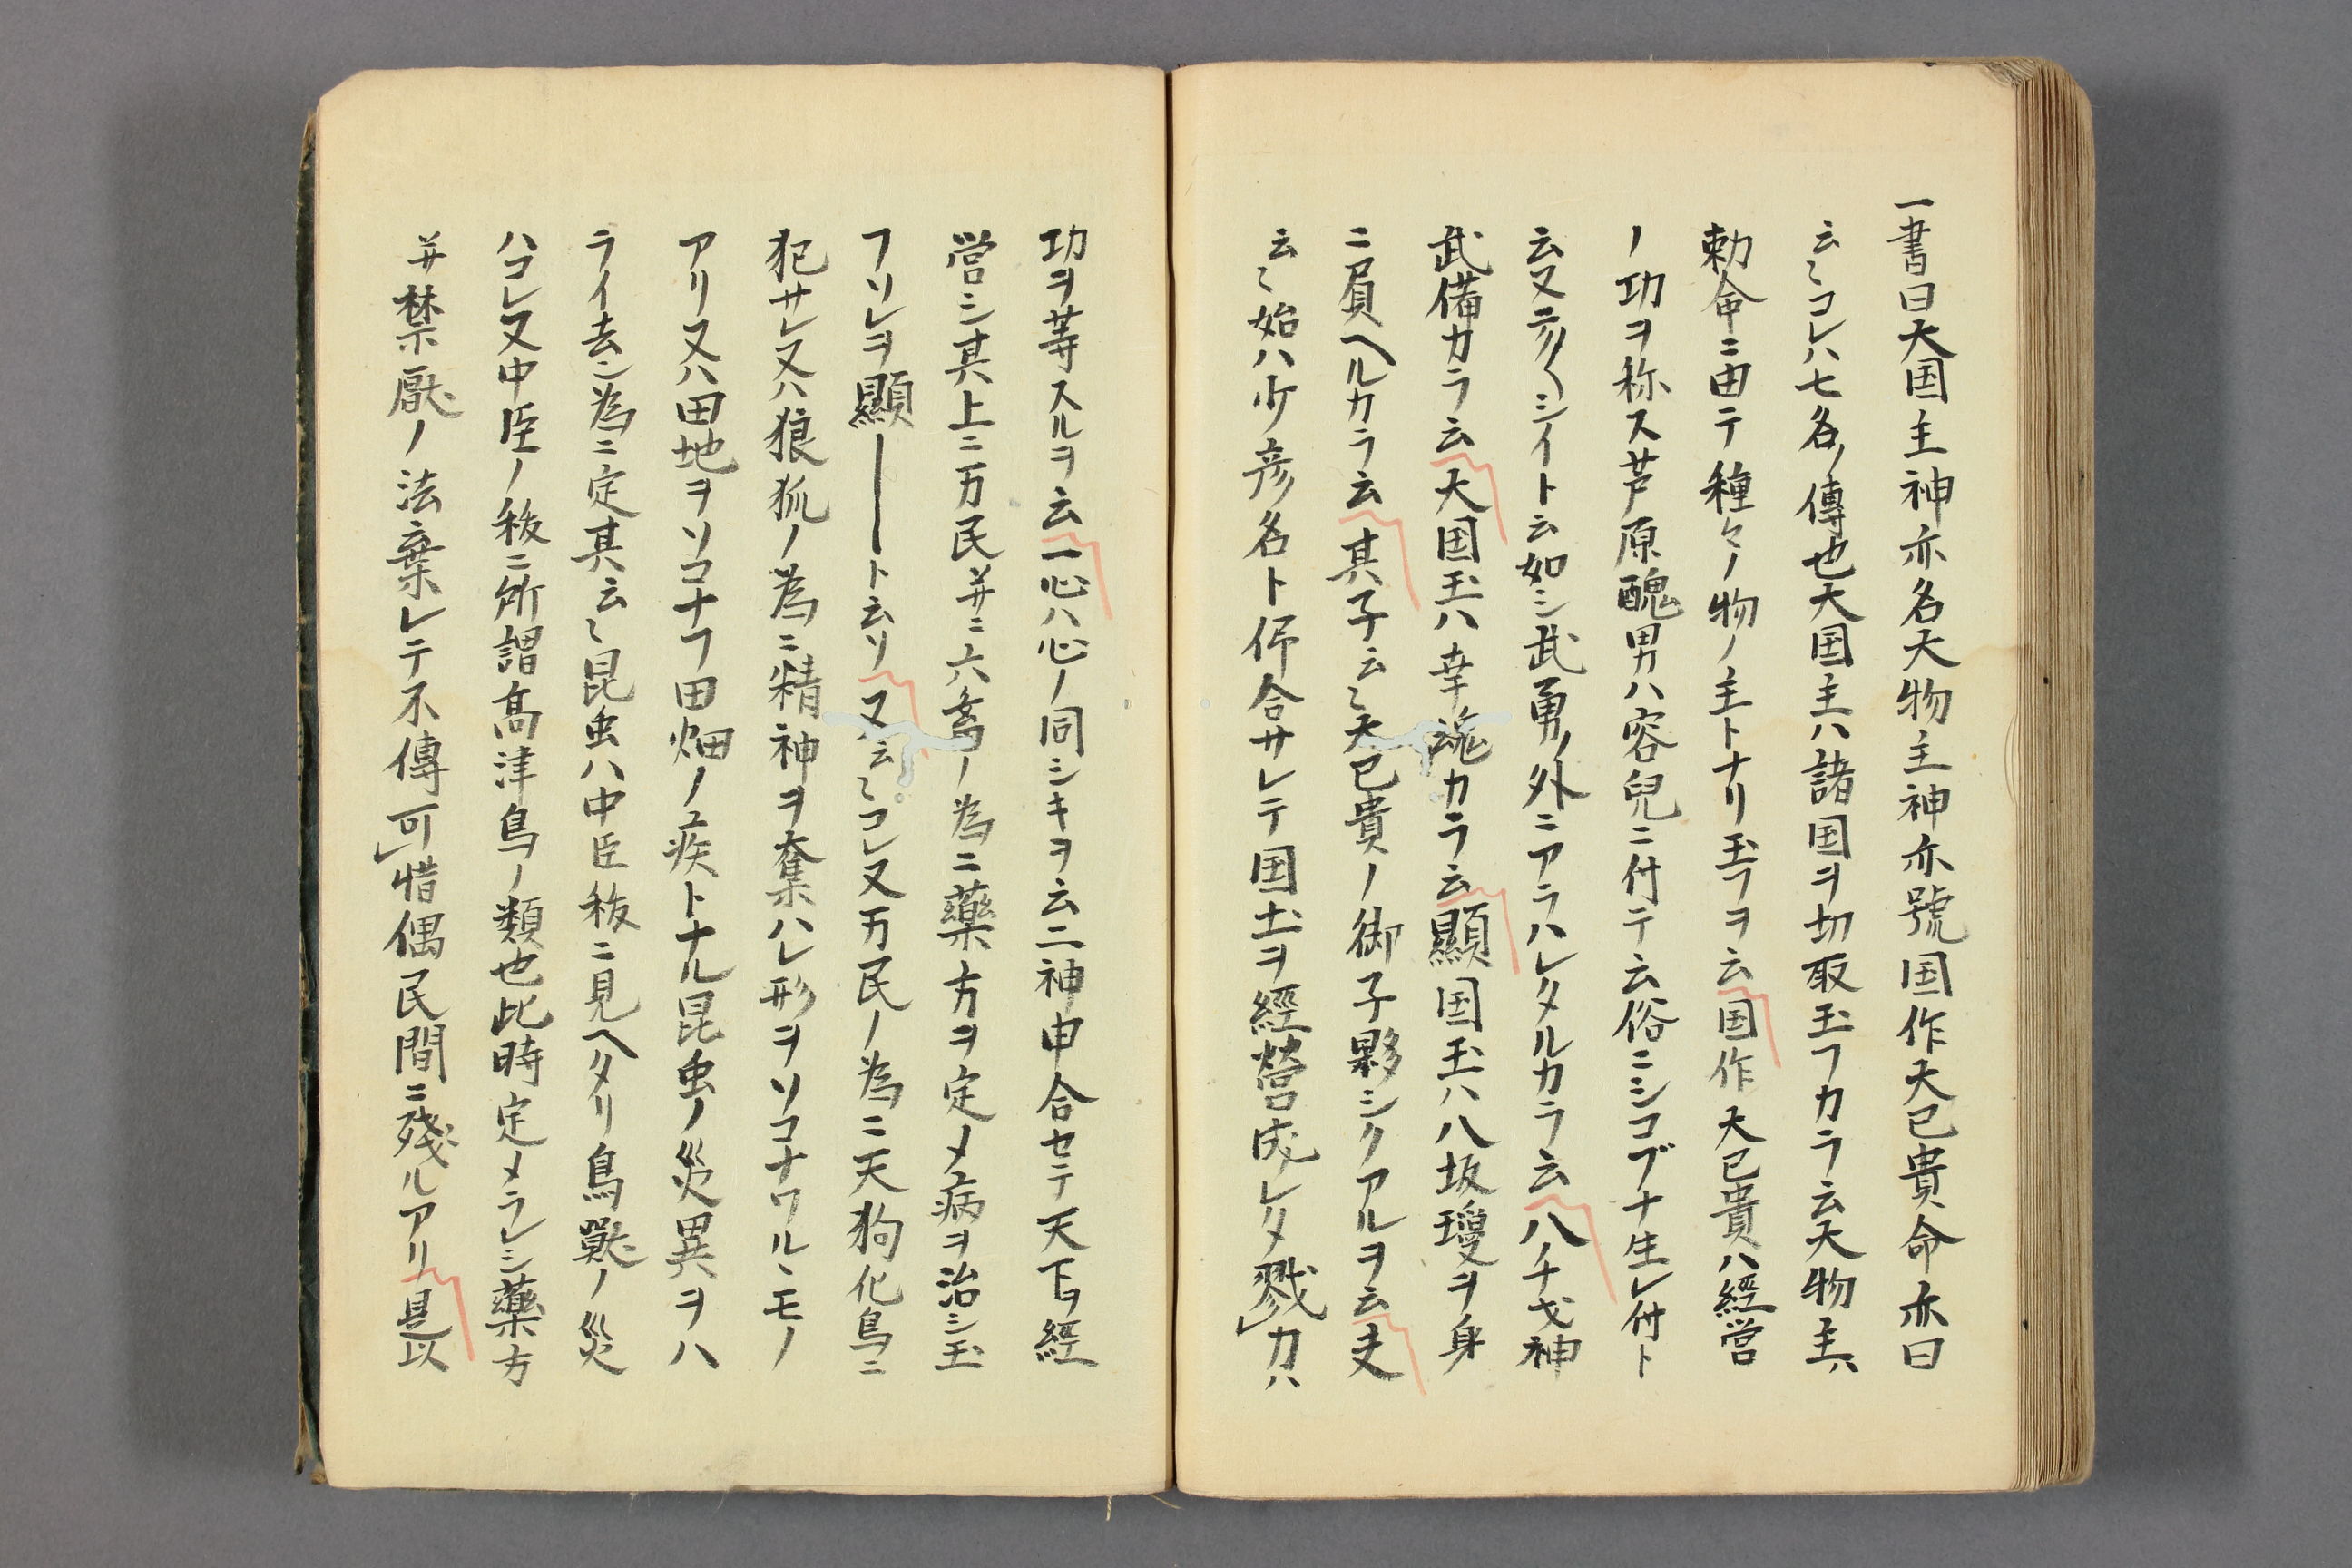 一書曰大国主神亦名大物主神亦號国作大已貴命亦曰
云〻コレハ七名ノ傳也大国主ハ諸国ヲ切取玉フカラ云大物主ハ
勅命ニ由テ種々ノ物ノ主トナリ玉フヲ云国作大已貴ハ經営
ノ功ヲ称ス芦原醜男ハ容皃ニ付テ云俗ニシコブナ生レ付ト
云又ニク〱シイト云如シ武勇ノ外ニアラハレタルカラ云八チ戈神
武備カラ云大国玉ハ幸魂カラ云顯国玉ハ八坂瓊ヲ身
ニ屓ヘルカラ云其子云〻大已貴ノ御子夥シクアルヲ云夫
云〻始ハ少彦名ト仰合サレテ国土ヲ經營成レタ戮力ハ
功ヲ等スルヲ云一心ハ心ノ同シキヲ云二神申合セテ天下ヲ經
営シ其上ニ万民并ニ六畜ノ為ニ藥方ヲ定メ病ヲ治シ玉
フソレヲ顯――ト云リ又云〻コレ又万民ノ為ニ天狗化鳥ニ
犯サレ又ハ狼狐ノ為ニ精神ヲ奪ハレ形ヲソコナワルヽモノ
アリ又ハ田地ヲソコナフ田畑ノ疾トナル昆虫ノ災異ヲハ
ライ去ン為ニ定其云〻昆虫ハ中臣秡ニ見ヘタリ鳥獸ノ災
ハコレ又中臣ノ秡ニ所謂髙津鳥ノ類也此時定メラレシ藥方
并禁厭ノ法棄レテ不傳可惜偶民間ニ殘ルアリ是以